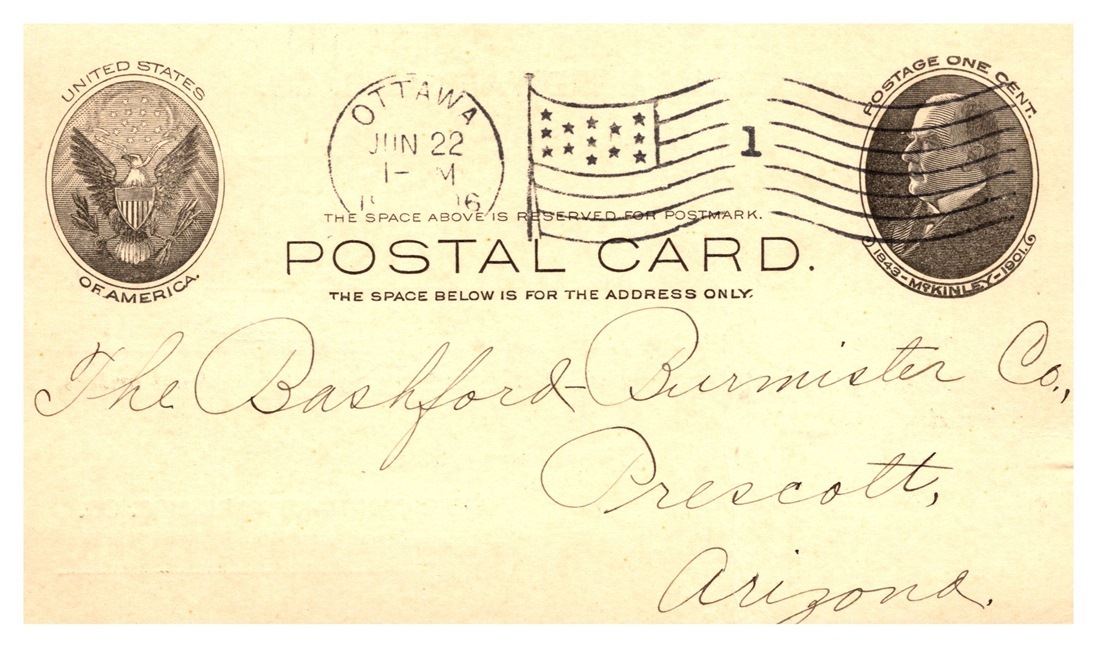 UNITED STATES
OF AMERICA.
OTTAWA
JUN 22
1- M
6
1
POSTAGE ONE CENT.
1843-McKINLEY-1901.
THE SPACE ABOVE IS RESERVED FOR POSTMARK.
POSTAL CARD.
THE SPACE BELOW IS FOR THE ADDRESS ONLY.
The Bashford-Burmister Co.,
Prescott,
Arizona.